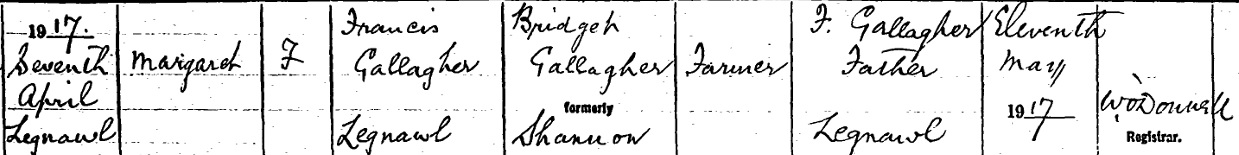 1917. Francis Bridget F. Gallagher Eleventh
Seventh Margaret F Gallagher Gallagher Farmer Father May
April formerly 1917 W. O'Donnell
Legnawl Legnawl Shannon Legnawl Registrar.